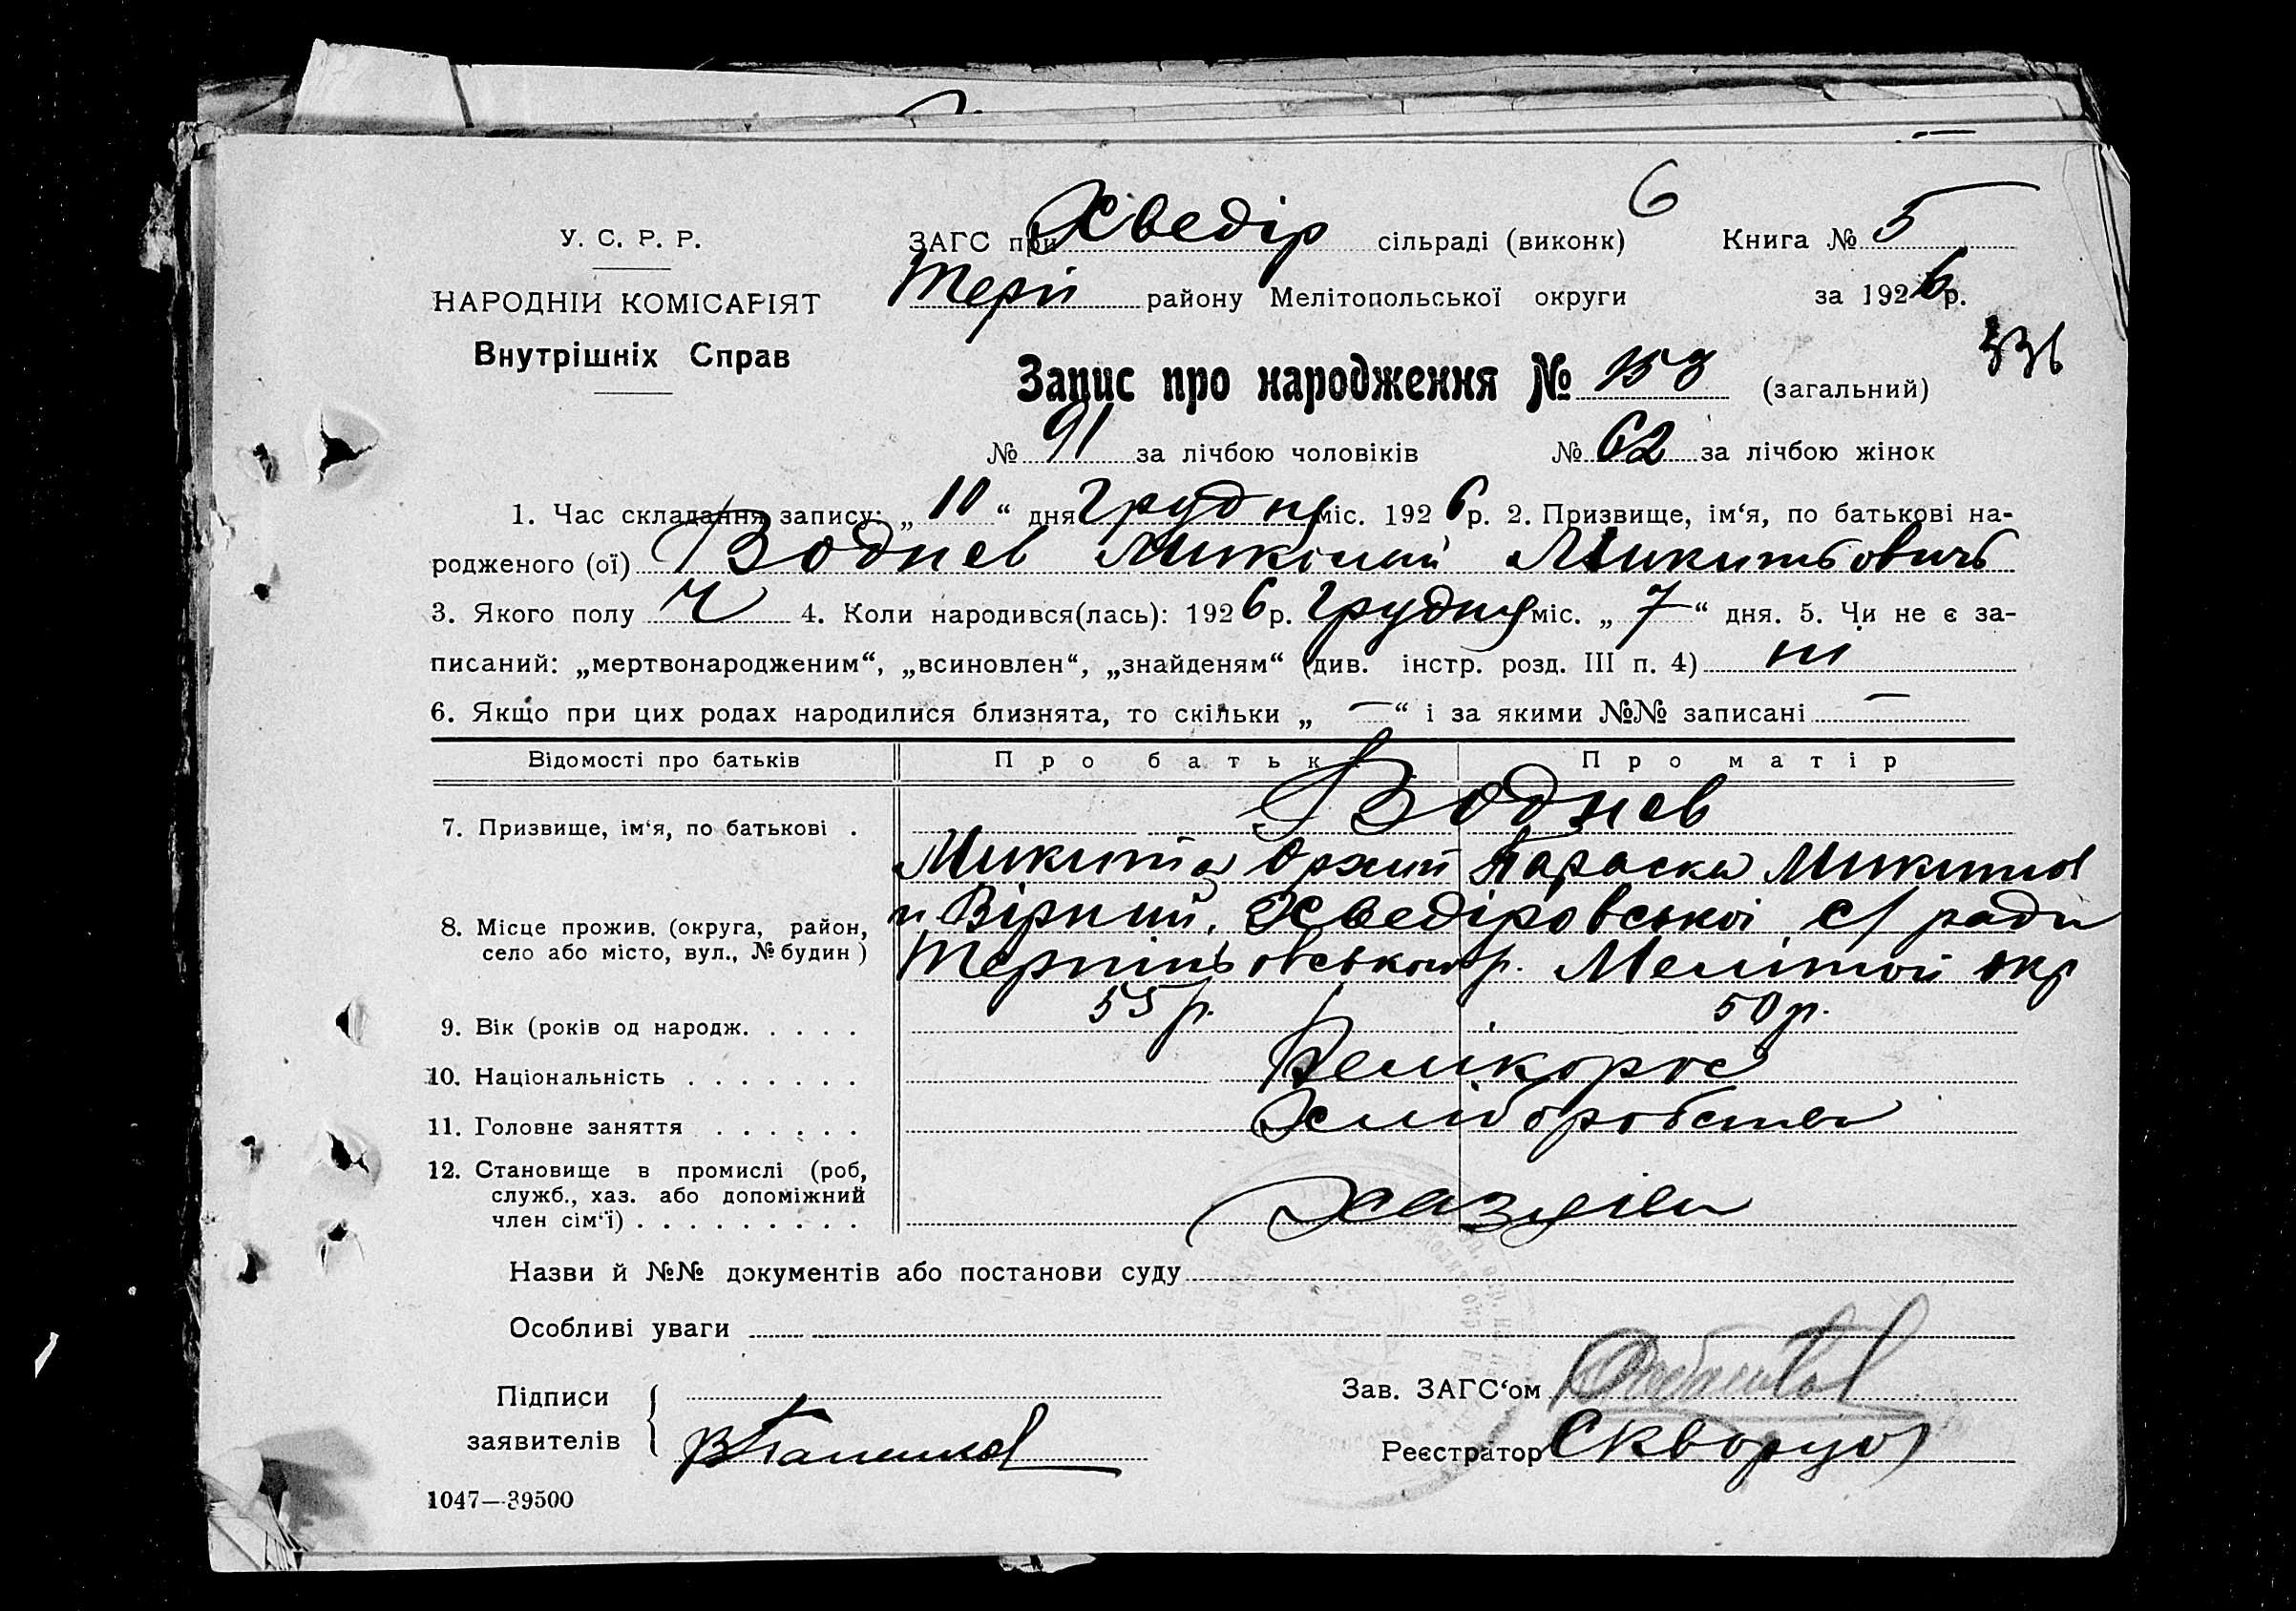 6
У. С. Р. Р.
ЗАГС при Хведір сільраді (виконк) Книга № 5
НАРОДНІЙ КОМІСАРІЯТ
Терп району Мелітопольської округи за 1926 р.
Внутрішніх Справ
336
Запис про народження № 153 (загальний)
№ 91 за лічбою чоловіків № 62 за лічбою жінок
1. Час складання запису: „ 10 “ дня Грудня міс. 192 6 р. 2. Призвище, ім‘я, по батькові на-
родженого (ої) Воднев Миколай Микитович
3. Якого полу Ч 4. Коли народився(лась): 192 6 р. Грудня міс. „ 7 “ дня. 5. Чи не є за-
писаний: „мертвонародженим“, „всиновлен“, „знайденям“ (див. інстр. розд. III п. 4) ні
6. Якщо при цих родах народилися близнята, то скільки „ — “ і за якими №№ записані —
Відомості про батьків Про батька Про матір
Воднев
7. Призвище, ім‘я, по батькові .
Микита Архип Параска Микитов
8. Місце прожив. (округа, район, п Вірний, Хведіровської с/ ради
село або місто, вул., № будин ) Терпіньовського р. Мелітоп окр
9. Вік (років од народж. . . . . 55 р. 50 р.
10. Національність . . . . . . . Великорос
11. Головне заняття . . . . . . Хліборобство
12. Становище в промислі (роб,
служб., хаз. або допоміжний
член сім‘ї) . . . . . . . . . Хазяїн
Назви й №№ документів або постанови суду
Особливі уваги
Підписи
Зав. ЗАГС‘ом
заявителів
Реєстратор Скворцов
1047—39500